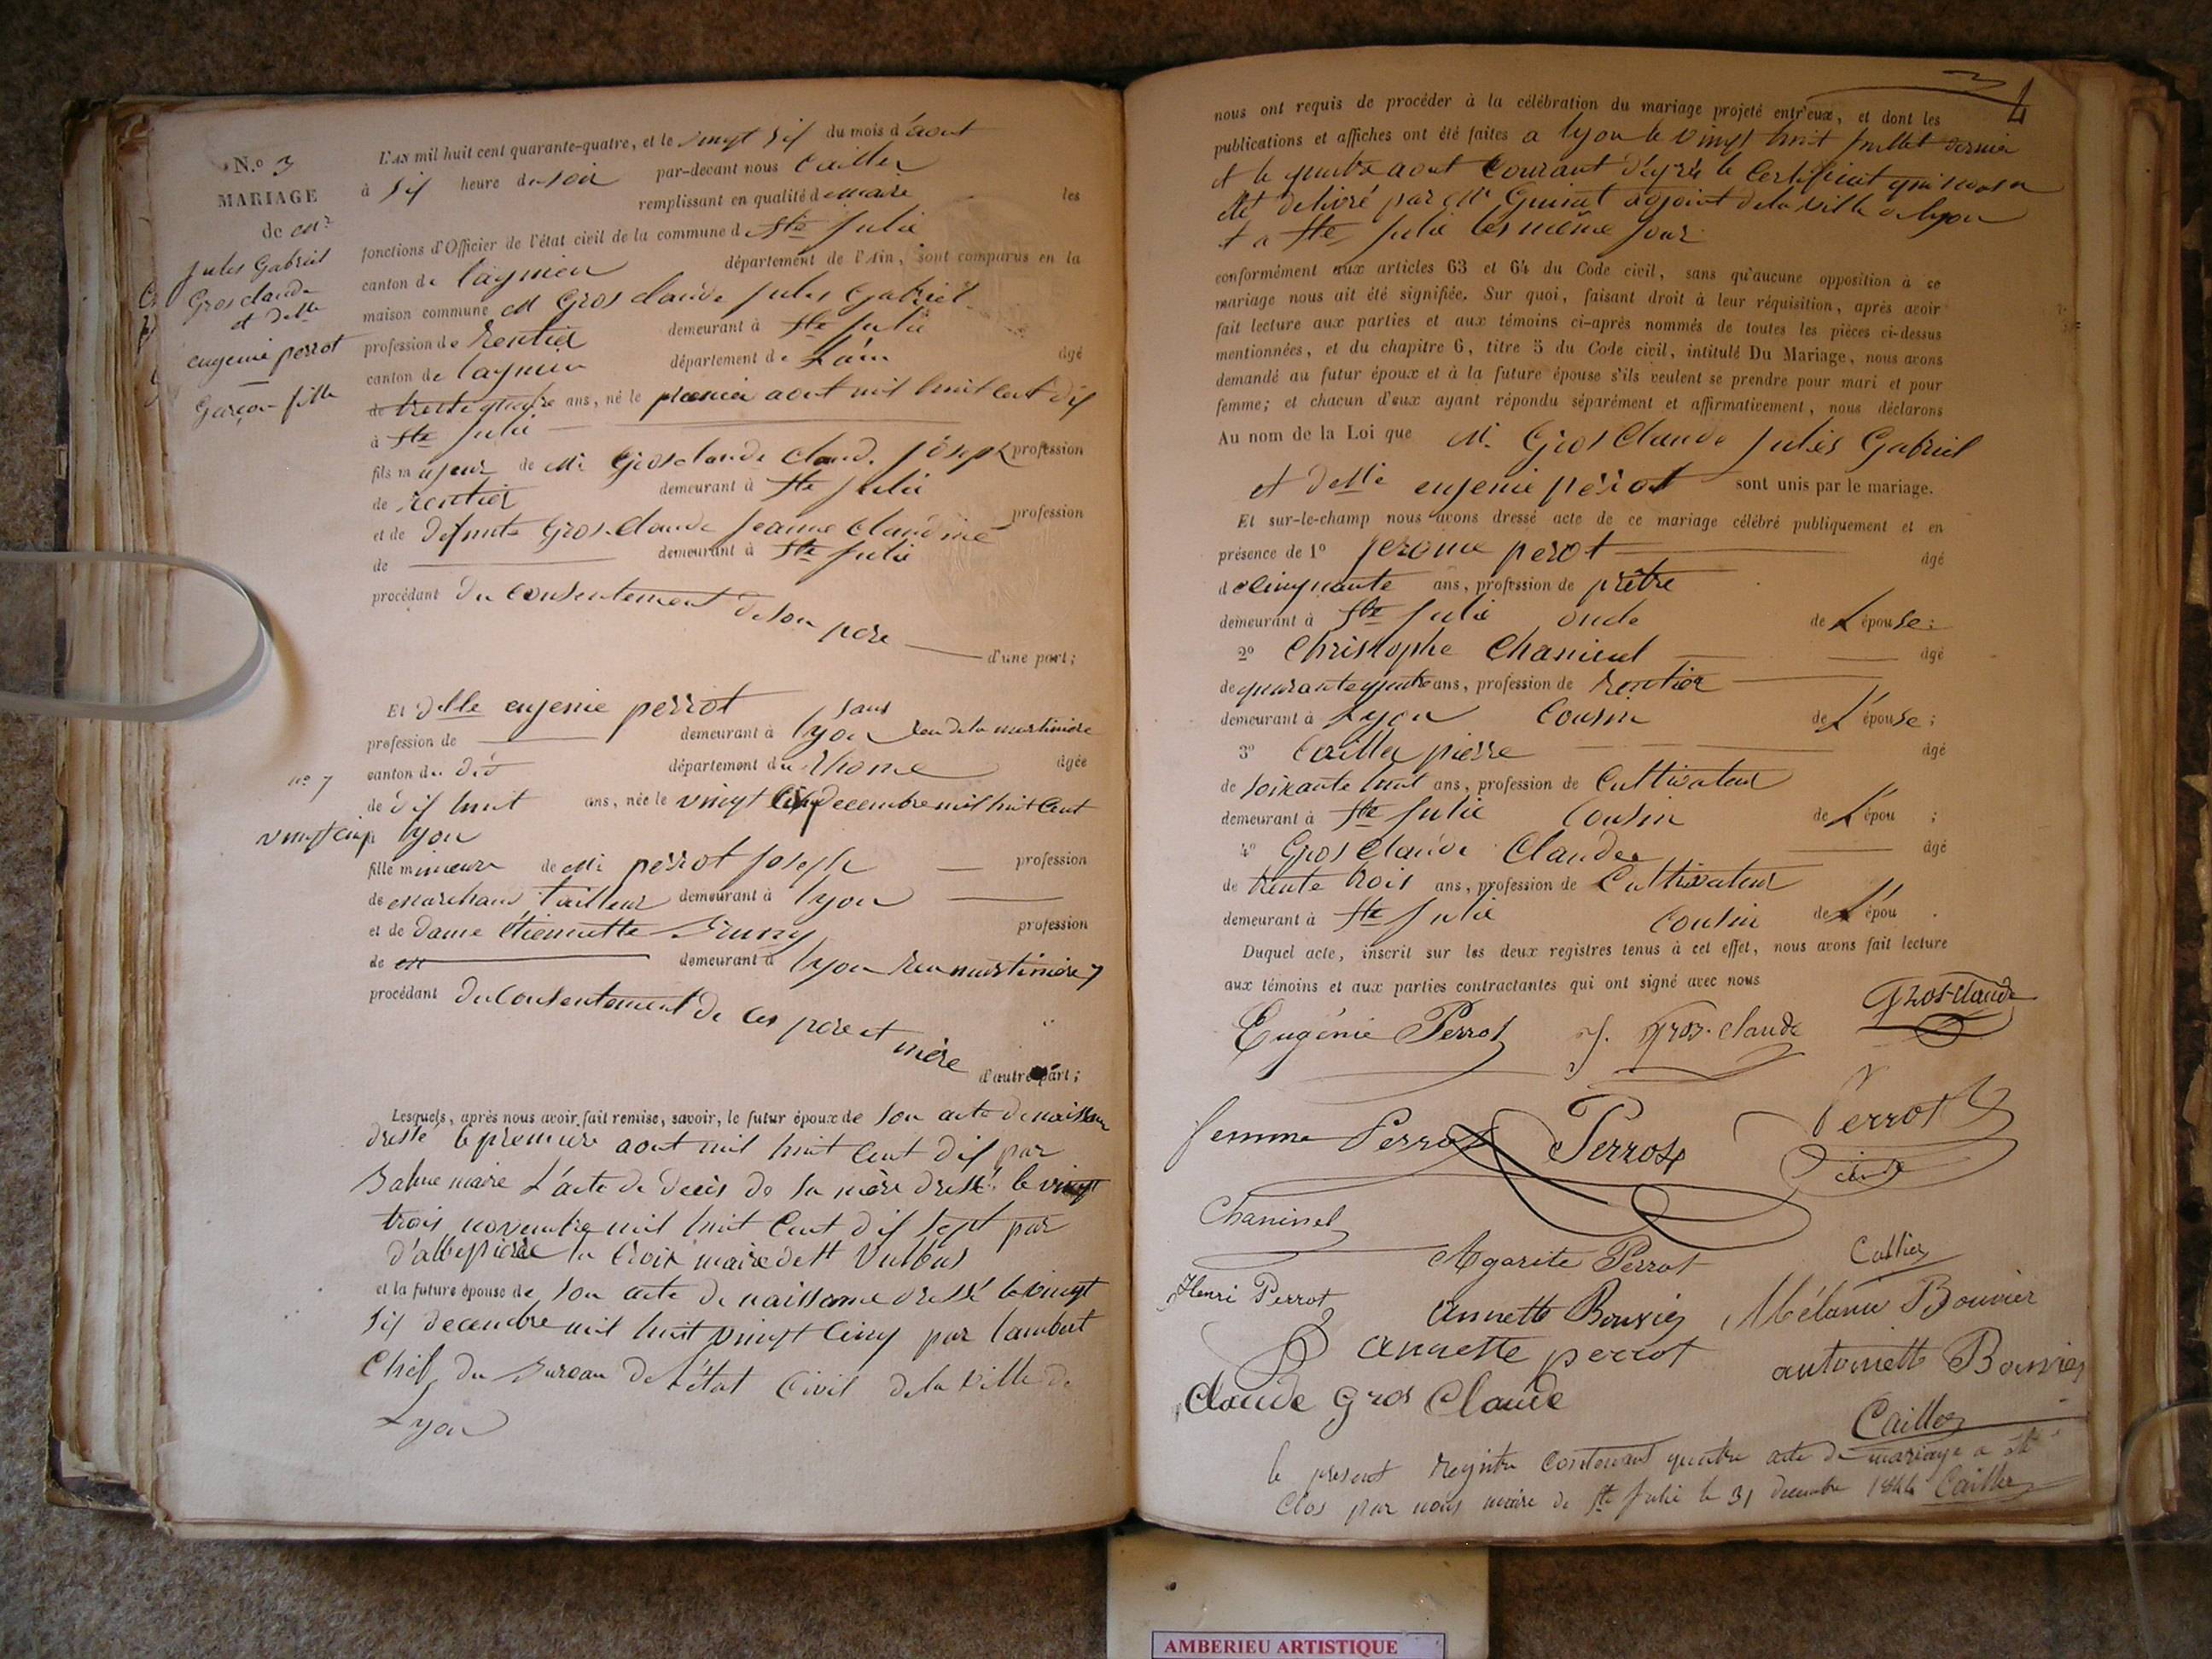 N.o 3
MARIAGE
de Mr
Jules Gabriel
Gros claude
et delle
eugenie perrot
Garçon fille
L'AN mil huit cent quarante-quatre, et le vingt six du mois d'aout
à six heure du soir par-devant nous Cailler
remplissant en qualité de maire les
fonctions d'Officier de l'état civil de la commune de Ste Julie
canton de lagnieu département de l'Ain, sont comparus en la
maison commune M Gros claude Jules Gabriel
profession de Rentier demeurant à Ste Julie
canton de lagnieu département de L'ain âgé
de trente quatre ans, né le premier aout mil huit cent dix
à Ste Julie
fils majeur de Mr Gros claude Claude Joseph profession
de rentier demeurant à Ste Julie
et de defunte Gros-Claude Jeanne Claudine profession
de demeurant à Ste Julie
procédant du Consentement de son pere
d'une part;
Et delle eugenie perrot
profession de sans demeurant à lyon Rue de la martiniere
no 7
canton du dit département du Rhone âgée
de dix huit ans, née le vingt cinq decembre mil huit cent
vingt cinq lyon
fille mineure de Mr perrot Joseph profession
de marchand tailleur demeurant à lyon
et de dame étiennette profession
de demeurant à lyon Rue martiniere 7
procédant du Consentement de ces pere et mère
d'autre part;
Lesquels, après nous avoir fait remise, savoir, le futur époux de son acte de naissance
dressé le premiere aout mil huit cent dix par
maire L'acte de deces de sa mère dressé le vingt
trois novembre mil huit Cent dix sept par
d'albepierre la Croix maire de St Vulbas
et la future épouse de son acte de naissance dressé le vingt
six decembre mil huit vingt cinq par lambert
Chef du Bureau de l'état Civil de la ville de
Lyon
4
nous ont requis de procéder à la célébration du mariage projeté entr'eux, et dont les
publications et affiches ont été faites a lyon le vingt huit juillet dernier
et le quatre aout Courant d'après le Certificat qui nous a
été delivré par Mr Guinet adjoint de la ville de lyon
et a Ste Julie les même jour
conformément aux articles 63 et 64 du Code civil, sans qu'aucune opposition à ce
mariage nous ait été signifiée. Sur quoi, faisant droit à leur réquisition, après avoir
fait lecture aux parties et aux témoins ci-après nommés de toutes les pièces ci-dessus
mentionnées, et du chapitre 6, titre 5 du Code civil, intitulé Du Mariage, nous avons
demandé au futur époux et à la future épouse s'ils veulent se prendre pour mari et pour
femme; et chacun d'eux ayant répondu séparément et affirmativement, nous déclarons
Au nom de la Loi que M. Gros Claude Jules Gabriel
et delle eugenie perrot sont unis par le mariage.
Et sur-le-champ nous avons dressé acte de ce mariage célébré publiquement et en
présence de 1o Jerome perot âgé
de Cinquante ans, profession de prêtre
demeurant à Ste Julie oncle de L'épouse:
2o Christophe Chaninel âgé
de quarante quatre ans, profession de Rentier
demeurant à Lyon Cousin de L'épouse;
3o Cailler pierre âgé
de soixante huit ans, profession de Cultivateur
demeurant à Ste Julie Cousin de L'épou ;
4o Gros Claude Claude âgé
de trente trois ans, profession de Cultivateur
demeurant à Ste Julie Cousin de L'épou .
Duquel acte, inscrit sur les deux registres tenus à cet effet, nous avons fait lecture
aux témoins et aux parties contractantes qui ont signé avec nous
Gros-Claude
Eugénie Perrot J. Gros-Claude
femme Perrot Perrot Perrot
Chaninel
Agarite Perrot Cailler
Henri Perrot Annette Bouvier Mélanie Bouvier
annette perrot antoinette Bouvier
Claude Gros Claude
Cailler
le present Registre Contenant quatre acte de mariage a été
Clos par nous maire de Ste Julie le 31 decembre 1844 Cailler
AMBERIEU ARTISTIQUE